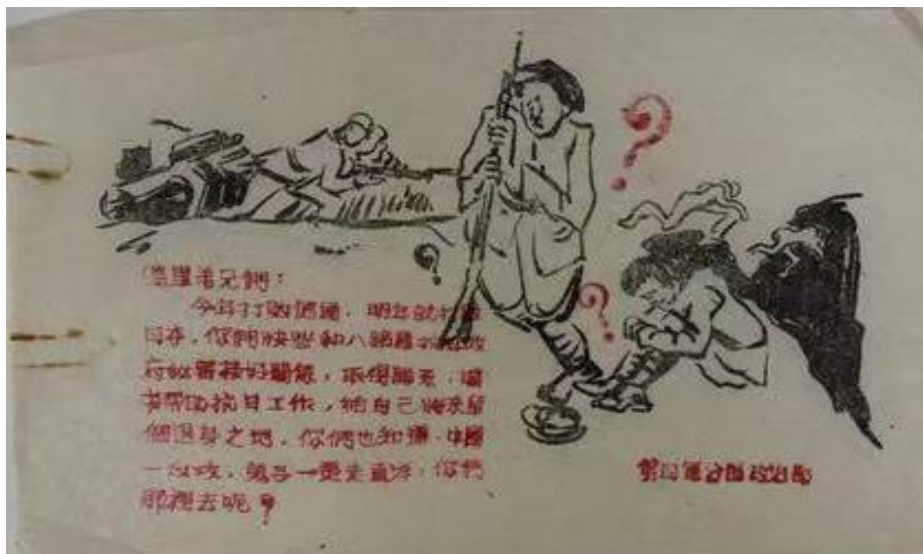 偽軍弟兄們：
今年打敗德國，明年就打敗
日本，你們快些和八路軍抗日政
府秘密接好關係，取得聯系，或
者幫助抗日工作，給自己將來留
個退身之地，你們也知道，中國
一反攻，鬼子一 你們
那裡去呢？
第四軍分區政治部